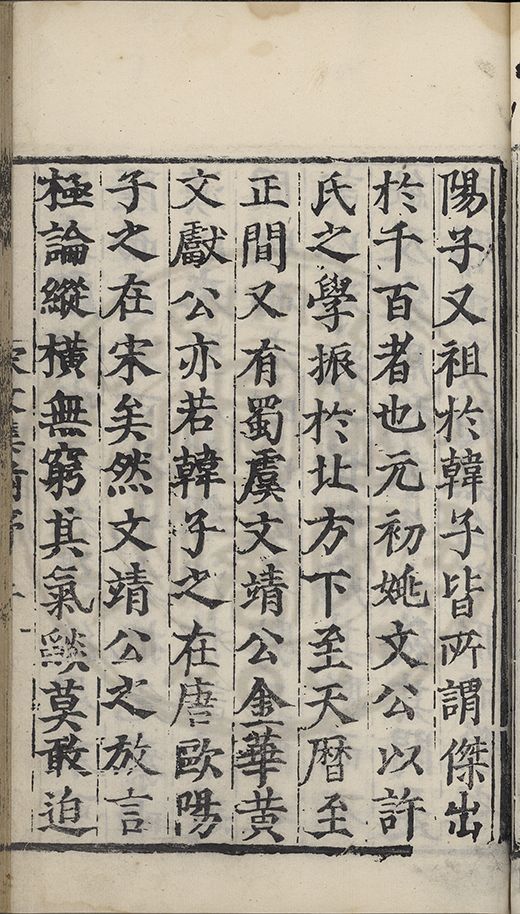 陽子又祖於韓子皆所謂傑出
於千百者也元初姚文公以許
氏之學振於北方下至天曆至
正間又有蜀虞文靖公金華黃
文獻公亦若韓子之在唐歐陽
子之在宋矣然文靖公之放言
極論縱橫無窮其氣燄莫敢迫